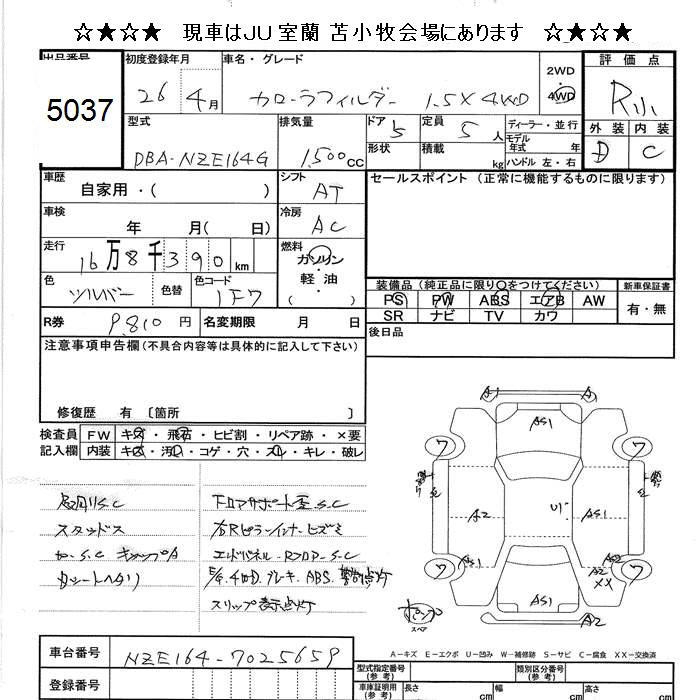 ☆★☆★ 現車はJU室蘭 苫小牧会場にあります ☆★☆★
出品番号
5037
初度登録年月
26 4月
車名・グレード
カローラフィルダー 1.5X 4WD
2WD
4WD
評価点
R小
外装 内装
D C
型式
DBA-NZE164G
排気量
1,500cc
ドア 5
形状
定員 5人
積載 kg
ディーラー・並行
モデル
年式 年
ハンドル 左・右
車歴
自家用・( )
シフト
AT
セールスポイント (正常に機能するものに限ります)
車検
年 月( 日)
冷房
AC
走行
16万8千390km
燃料
ガソリン
軽・油
( )
色
シルバー
色替
色コード
1F7
装備品 (純正品に限り○をつけてください)
新車保証書
PS PW ABS エアB AW
SR ナビ TV カワ
有・無
R券 9,810円
名変期限 月 日
後日品
注意事項申告欄(不具合内容等は具体的に記入して下さい)
修復歴 有 〔箇所 〕
検査員
記入欄
FW キズ・飛石・ヒビ割・リペア跡・×要
内装 キズ・汚れ・コゲ・穴・スレ・キレ・破レ
足回りS.C
スタッドス
Fシートヘタリ
コアサポート歪 S.C
右Rピラーインナーヒズミ
エンドパネル・RフロアーS.C
E/G.4WD.ブレーキ.ABS.警告灯点灯
スリップ表示点灯
A1 A1
AS1
ワ ワ
E E
A2 U1 AS1
AS1 A2
XX
ワ ワ
AS1
A2
スペア
A－キズ E－エクボ U－凹み W－補修跡 S－サビ C－腐食 XX－交換済
車台番号
NZE164-7025659
登録番号
型式指定番号
(参考)
類別区分番号
(参考)
車庫証明用
(参考)
長さ cm
幅 cm
高さ cm